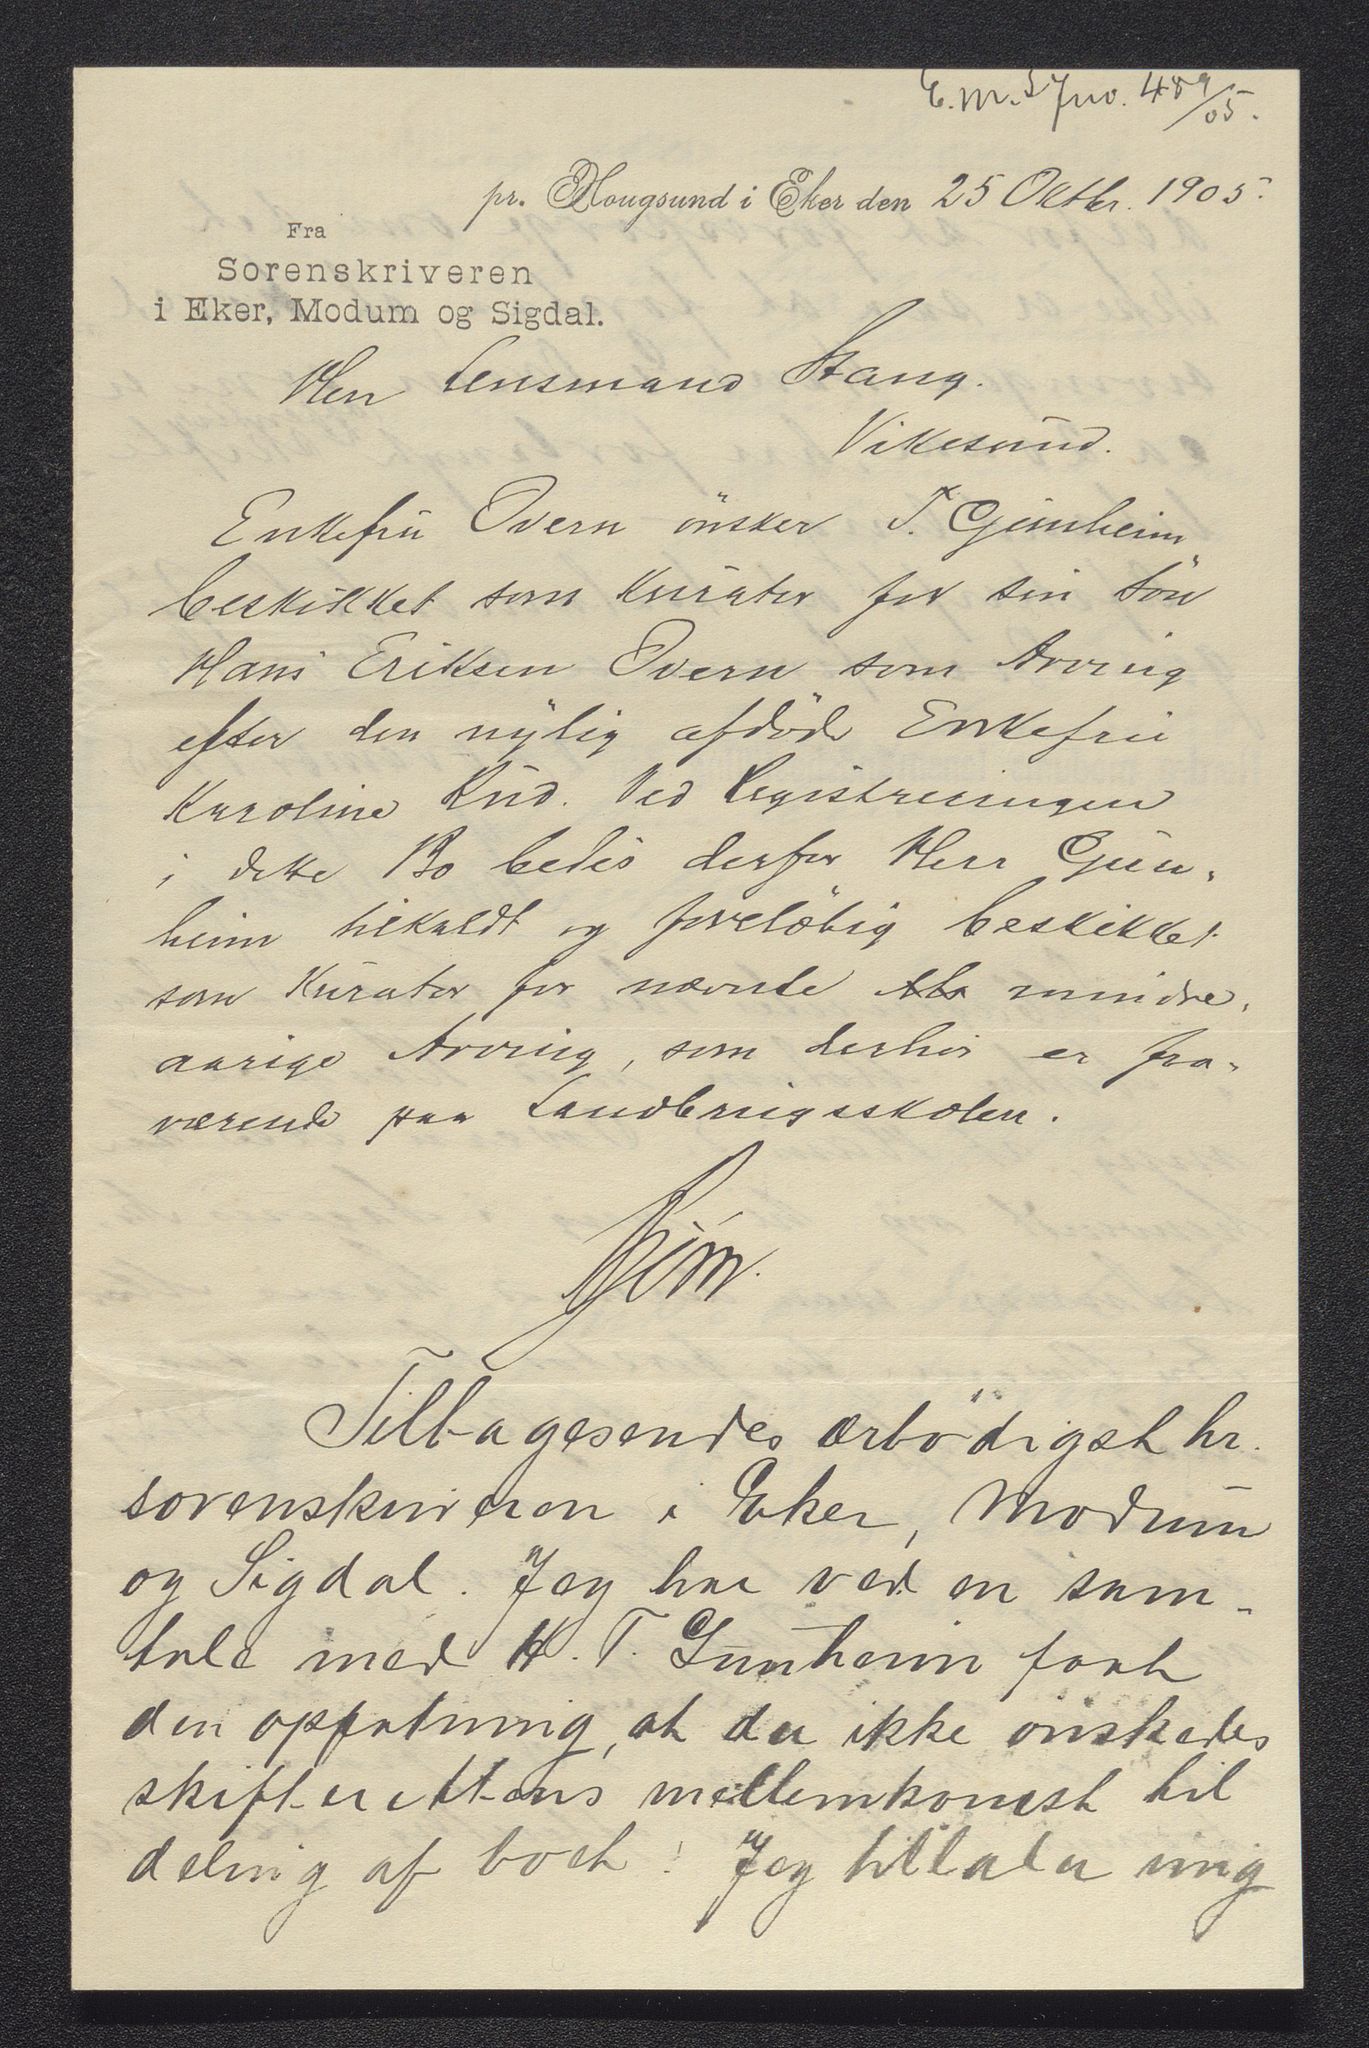 E.M.S Jno. 489/05.
pr. Hougsund i Eker den 25 Oktbr. 1905.
Fra
Sorenskriveren
i Eker, Modum og Sigdal.
Herr Lensmand Stang.
Vikesund.
Enkefru Overn ønsker T. Gunheim
beskikket som Kurator for sin Søn
Hans Eriksen Overn som Arving
efter den nylig afdøde Enkefru
Karoline Rud. Ved Registreringen
i dette Bo bedes derfor Herr Gun-
heim tilkaldt og foreløbig beskikket
som Kurator for nævnte mindre-
aarige Arving, som derhos er fra-
værende paa Landbrugsskolen.
Tilbagesendes ærbødigst hr.
sorenskriveren i Eker, Modum
og Sigdal. Jeg har ved en sam-
tale med H. T. Gunheim faat
den opfatning, at der ikke ønskedes
skifterettens mellemkomst til
deling af boet. Jeg tillater mig